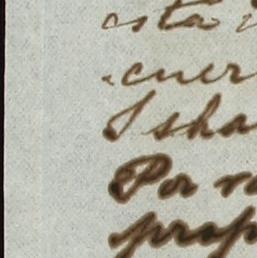 esta
cuer
Isha
Por ra
prop